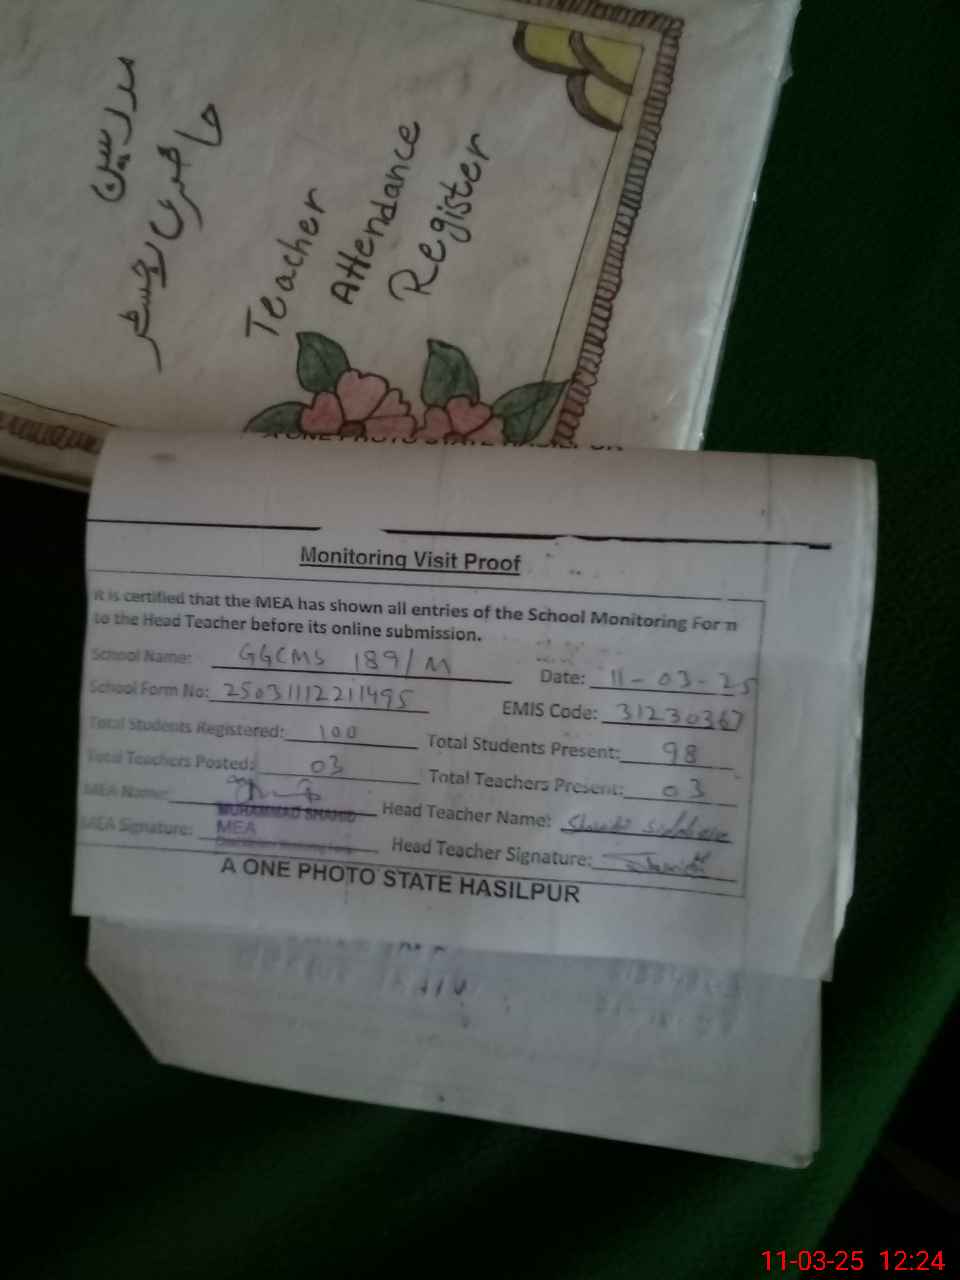 مدرسین
حاضری رجسٹر
Teacher
Attendance
Register
A ONE PHOTO STATE HASILPUR
Monitoring Visit Proof
It is certified that the MEA has shown all entries of the School Monitoring Form
to the Head Teacher before its online submission.
School Name: GGCMS 189/M Date: 11-03-25
School Form No: 25031112211495 EMIS Code: 31230367
Total Students Registered: 100 Total Students Present: 98
Total Teachers Posted: 03 Total Teachers Present: 03
MEA Name: MUHAMMAD SHAHID Head Teacher Name:
MEA Signature: MEA Head Teacher Signature:
A ONE PHOTO STATE HASILPUR
11-03-25 12:24